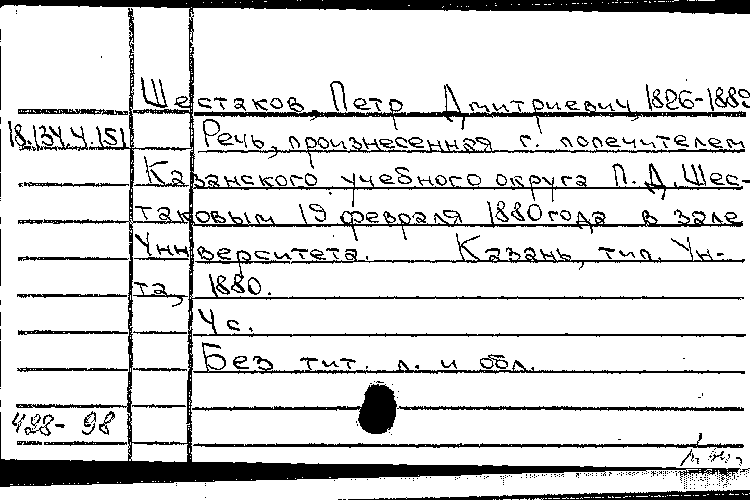 Шестаков, Петр Дмитриевич, 1826-1889
18.134.4.151 Речь, произнесенная г. попечителем
Казанского учебного округа П. Д. Шес-
таковым 19 февраля 1880 года в зале
Университета. Казань, тип. Ун-
та, 1880.
4 с.
Без тит. л. и обл.
428-98